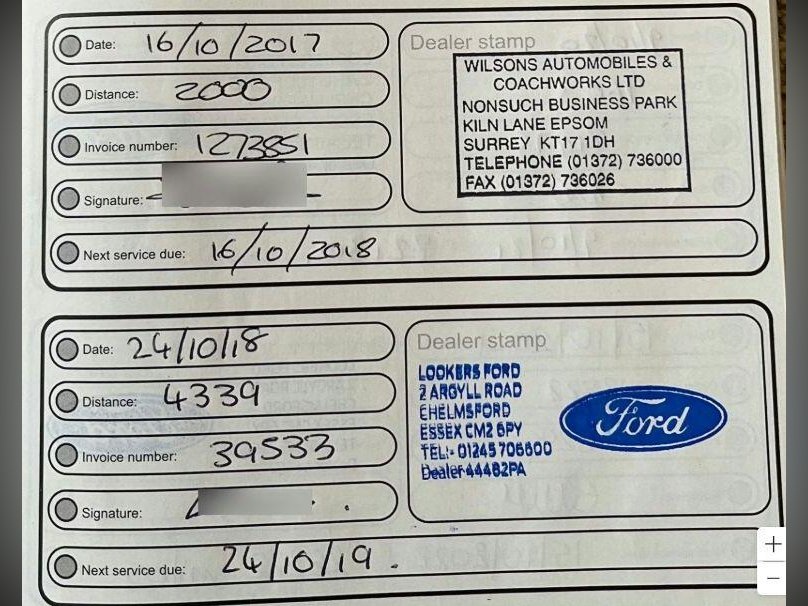 Date: 16/10/2017
Distance: 2000
Invoice number: 1273851
Signature:
Next service due: 16/10/2018
Dealer stamp
WILSONS AUTOMOBILES &
COACHWORKS LTD
NONSUCH BUSINESS PARK
KILN LANE EPSOM
SURREY KT17 1DH
TELEPHONE (01372) 736000
FAX (01372) 736026
Date: 24/10/18
Distance: 4339
Invoice number: 39533
Signature:
Next service due: 24/10/19.
Dealer stamp
LOOKERS FORD
2 ARGYLL ROAD
CHELMSFORD
ESSEX CM2 6PY
TEL:- 01245 706600
Dealer 44462PA
Ford